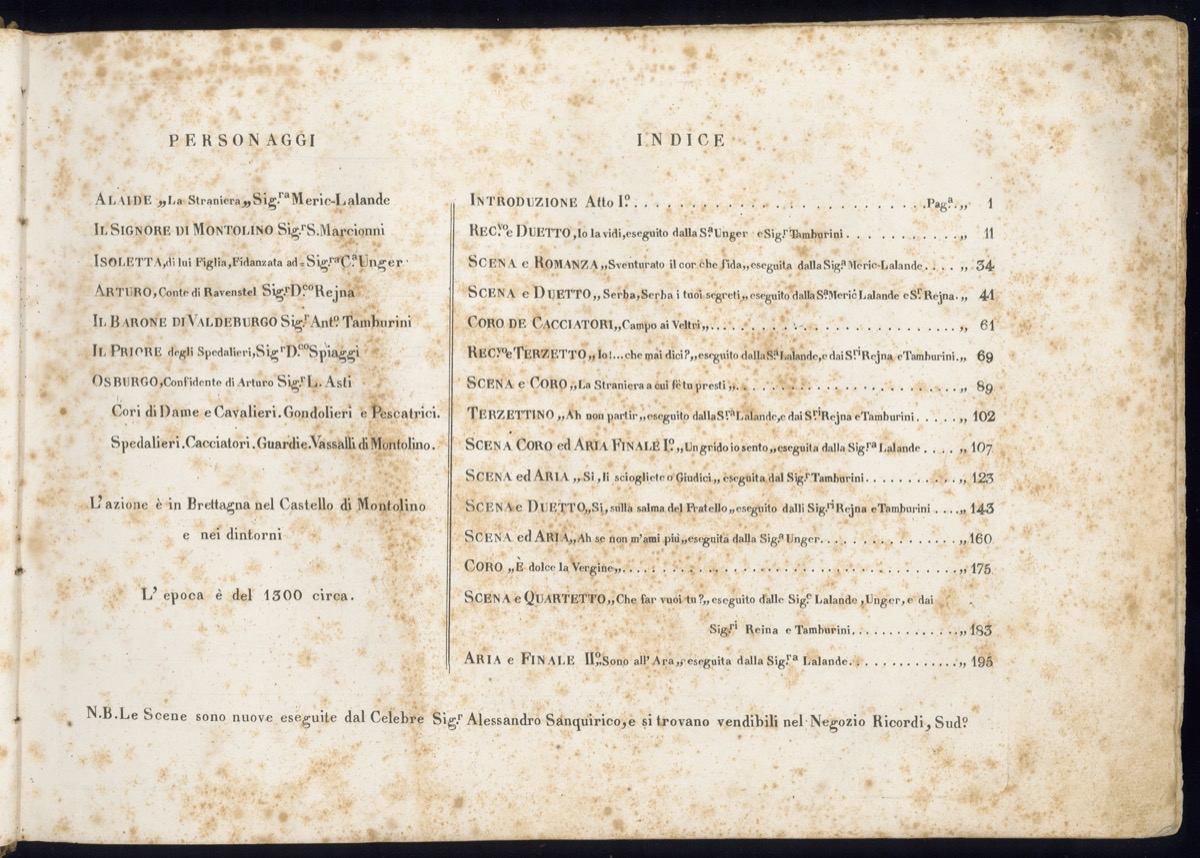 PERSONAGGI
ALAIDE „La Straniera„ Sig.ra Meric-Lalande
IL SIGNORE DI MONTOLINO Sig.r S. Marcionni
ISOLETTA, di lui Figlia, Fidanzata ad= Sig.ra C.a Unger
ARTURO, Conte di Ravenstel Sig.r D.co Rejna
IL BARONE DI VALDEBURGO Sig.r Ant.o Tamburini
IL PRIORE degli Spedalieri, Sig.r D.co Spiaggi
OSBURGO, Confidente di Arturo Sig.r L. Asti
Cori di Dame e Cavalieri. Gondolieri e Pescatrici.
Spedalieri. Cacciatori. Guardie. Vassalli di Montolino.
L'azione è in Brettagna nel Castello di Montolino
e nei dintorni
L'epoca è del 1300 circa.
INDICE
INTRODUZIONE Atto I.o . . . . . . . . . . Pag.a „ 1
REC.vo e DUETTO, Io la vidi, eseguito dalla S.a Unger e Sig.r Tamburini . . . . . . . . . . „ 11
SCENA e ROMANZA „Sventurato il cor che fida„ eseguita dalla Sig.a Meric-Lalande . . . . „ 34
SCENA e DUETTO „Serba, Serba i tuoi segreti„ eseguito dalla S.a Meric Lalande e S.r Rejna. „ 41
CORO DE CACCIATORI „Campo ai Veltri„ . . . . . . . . . . „ 61
REC.vo e TERZETTO „Io!... che mai dici?„ eseguito dalla S.a Lalande, e dai S.ri Rejna e Tamburini. „ 69
SCENA e CORO „La Straniera a cui fè tu presti„ . . . . . . . . . . „ 89
TERZETTINO „Ah non partir„ eseguito dalla S.ra Lalande, e dai S.ri Rejna e Tamburini . . . . . „ 102
SCENA CORO ed ARIA FINALE I.o „Un grido io sento„ eseguita dalla Sig.ra Lalande . . . . „ 107
SCENA ed ARIA „Si, li sciogliete o Giudici„ eseguita dal Sig.r Tamburini . . . . . . . . . . „ 123
SCENA e DUETTO „Si, sulla salma del Fratello„ eseguito dalli Sig.ri Rejna e Tamburini . . . . „ 143
SCENA ed ARIA „Ah se non m'ami più„ eseguita dalla Sig.a Unger . . . . . . . . . . „ 160
CORO „È dolce la Vergine„ . . . . . . . . . . „ 175
SCENA e QUARTETTO „Che far vuoi tu?„ eseguito dalle Sig.e Lalande, Unger, e dai
Sig.ri Reina e Tamburini . . . . . . . . . . „ 183
ARIA e FINALE II.o „Sono all'Ara„ eseguita dalla Sig.ra Lalande . . . . . . . . . . „ 195
N.B. Le Scene sono nuove eseguite dal Celebre Sig.r Alessandro Sanquirico, e si trovano vendibili nel Negozio Ricordi, Sud.o